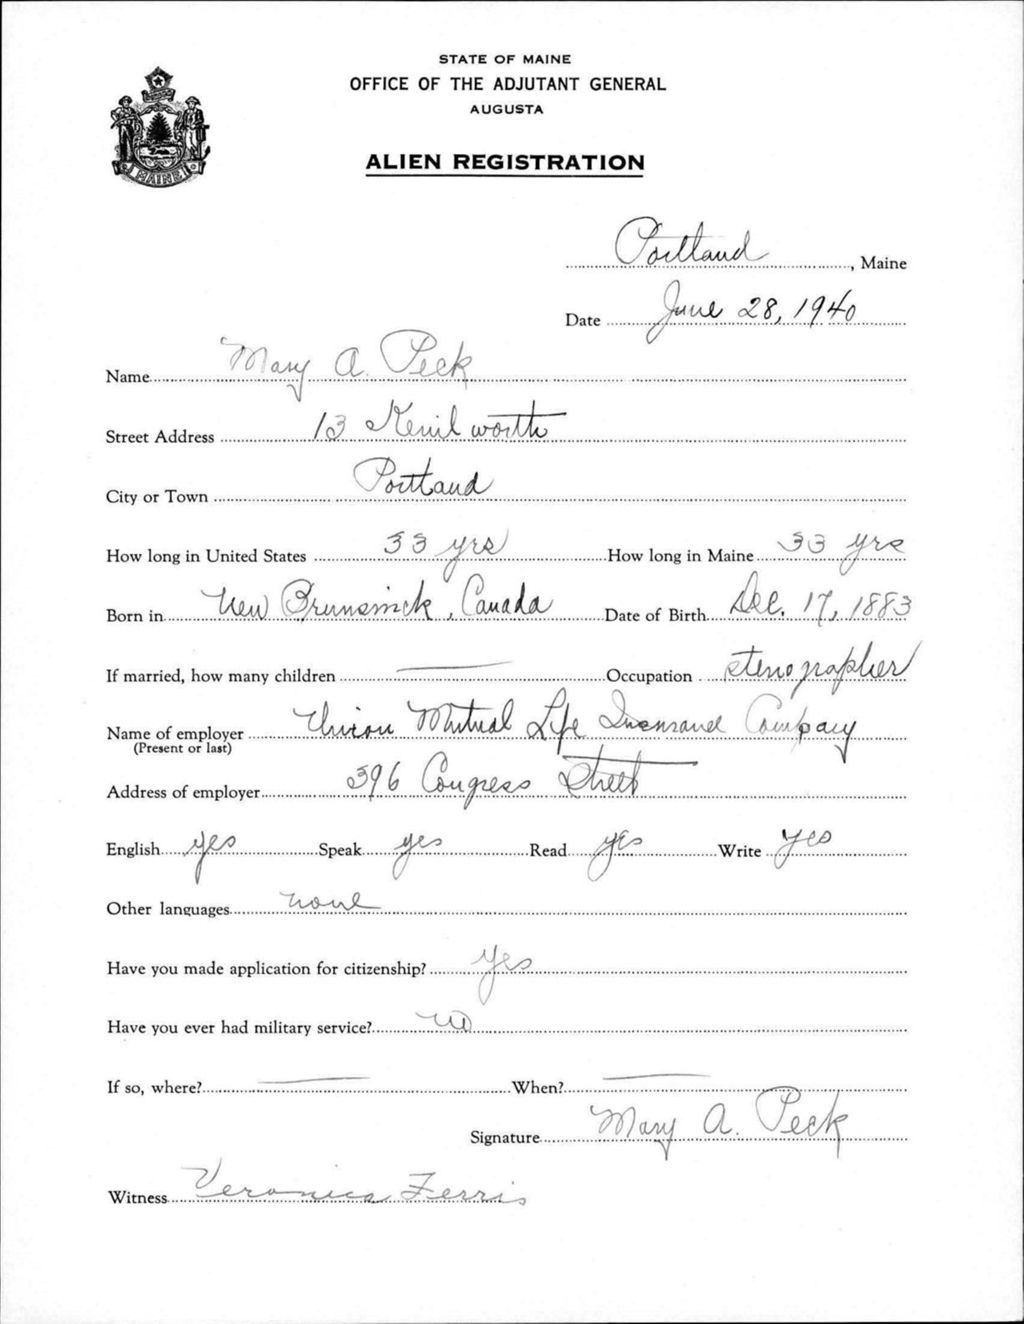 STATE OF MAINE
OFFICE OF THE ADJUTANT GENERAL
AUGUSTA
ALIEN REGISTRATION
MAINE
Portland, Maine
Date June 28, 1940
Name Mary A. Peck
Street Address 13 Kenilworth
City or Town Portland
How long in United States 33 yrs How long in Maine 33 yrs
Born in New Brunswick, Canada Date of Birth Dec. 17, 1883
If married, how many children — Occupation stenographer
Name of employer Union Mutual Life Insurance Company
(Present or last)
Address of employer 396 Congress Street
English yes Speak yes Read yes Write yes
Other languages none
Have you made application for citizenship? yes
Have you ever had military service? no
If so, where? — When? —
Signature Mary A. Peck
Witness Veronica Ferris